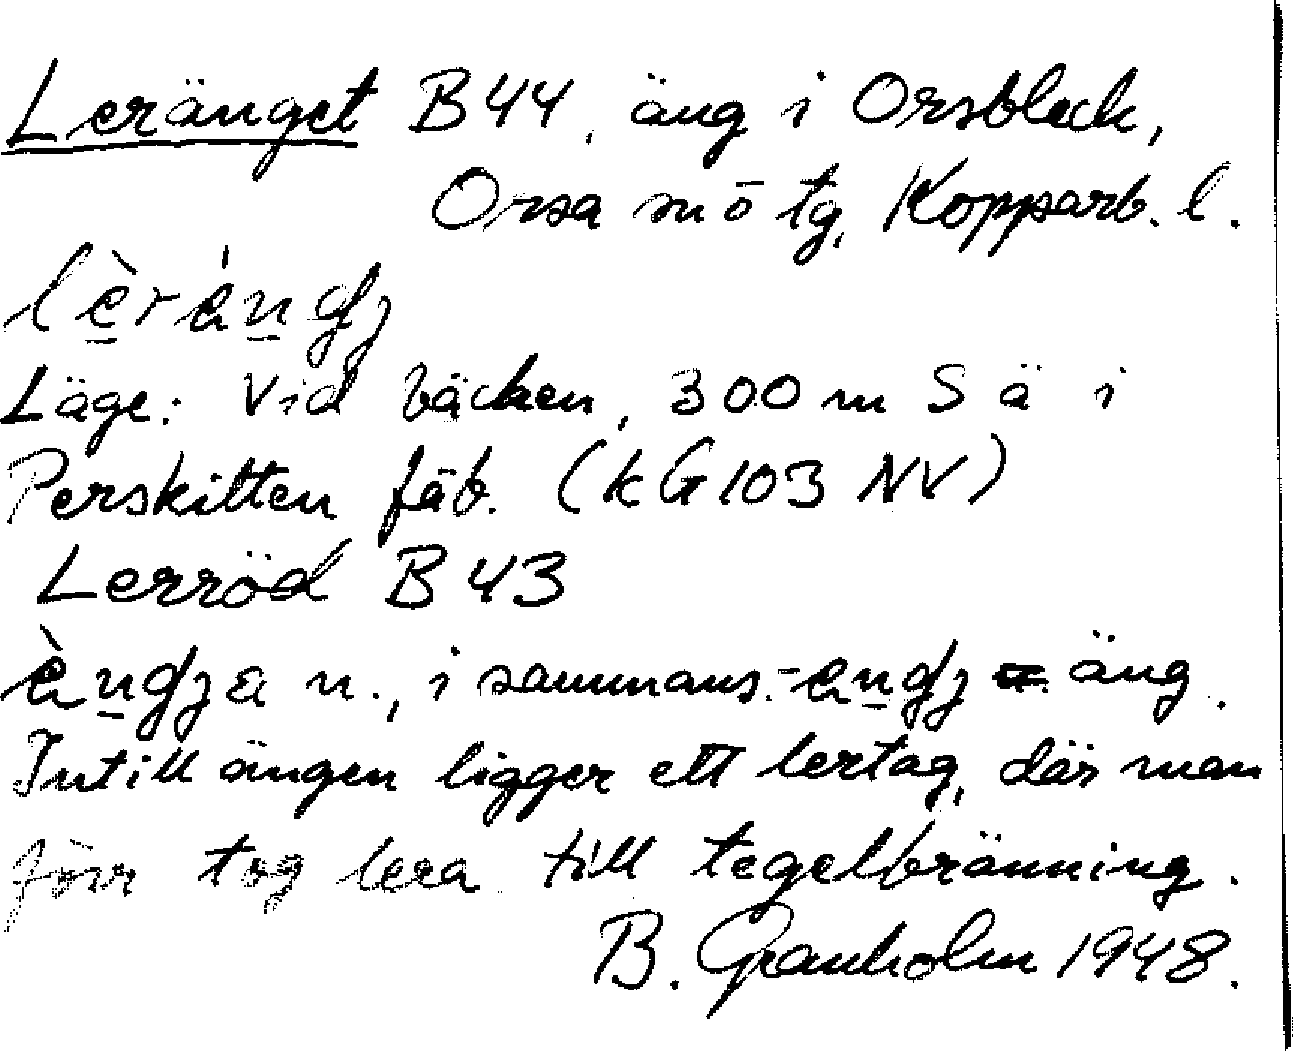 Leränget B44, äng i Orsbleck,
Orsa snö tg, Kopparb. l.
lèr èṉdj
Läge: Vid bäcken, 300 m S ä i
Perskitten fäb. (kG103 NV)
Lerröd B 43
èṉdja n., i sammans. -eṉdj = äng.
Intill ängen ligger ett lertag, där man
förr tog lera till tegelbränning.
B. Granholm 1948.